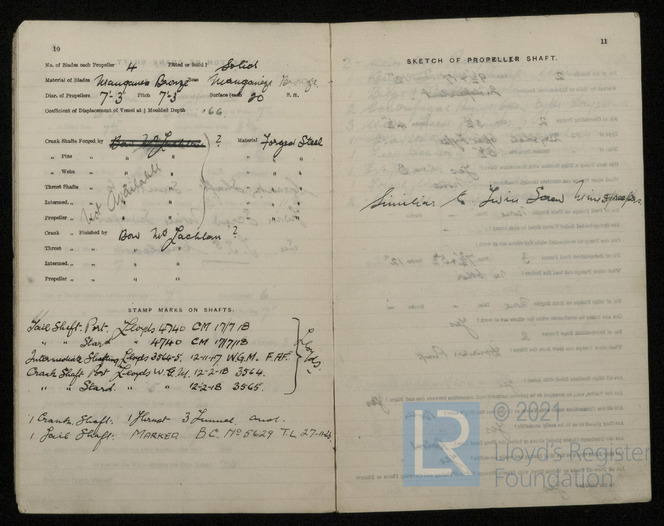 10
No. of Blades each Propeller 4 Fitted or Solid? Solid
Material of Blades Manganese Bronze Boss Manganese Bronze
Diar. of Propellers 7'-3 Pitch 7'-3 Surface (each 20 S. ft.
Coefficient of Displacement of Vessel at ¾ Moulded Depth ·66
Crank Shafts Forged by Bow McLachlan ? Material Forged Steel
„ Pins „ „ „
„ Webs „ „ „
Thrust Shafts „ Not Available „ „
Intermed. „ „ „ „
Propeller „ „ „ „
Crank „ Finished by Bow McLachlan ?
Thrust „ „ „
Intermed. „ „ „
Propeller „ „ „
STAMP MARKS ON SHAFTS.
Tail Shaft. Port. Lloyds 4740 CM 17/7/18
„ „ Stard „ 4740 CM 17/7/18
Intermediate Shafting Lloyds 3564-5. 12-11-17 W.G.M. F.A.F.
Crank Shaft Port Lloyds W.G.M. 12-2-18 3564.
„ „ Stard. „ „ 12-2-18 3565.
Lloyds.
1 Crank Shaft. 1 Thrust 3 Tunnel and
1 Tail Shaft. MARKED B.C. No 5629 T.L 27-11-43
11
SKETCH OF PROPELLER SHAFT.
Similiar to Twin Screw Minesweepers.
LR
© 2021
Lloyd's Register
Foundation